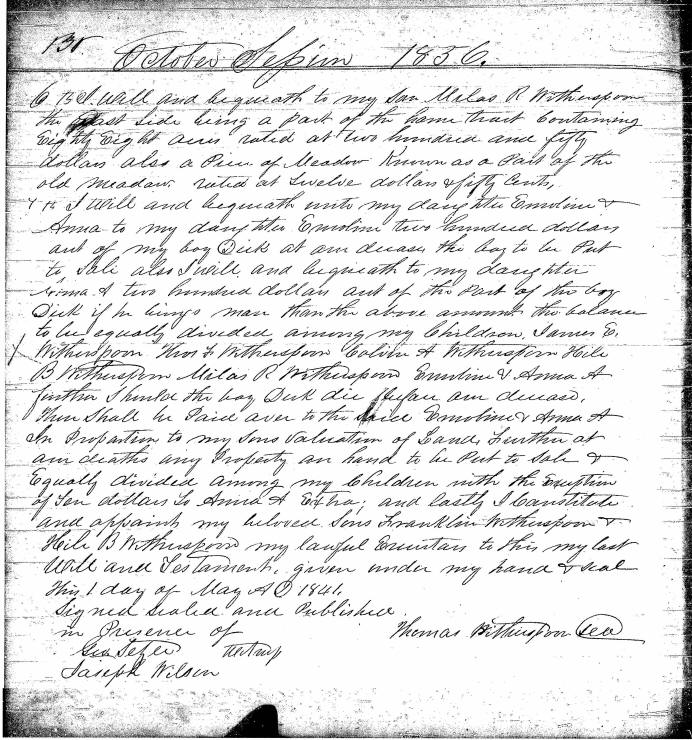 138
October Session 1856.
6 th I Will and bequeath to my Son Milas R Witherspoon
the East Side being a part of the home tract Containing
Eighty Eight acres rated at two hundred and fifty
dollars also a Piece of Meadow Known as a Part of the
old meadow. rated at Twelve dollars & fifty Cents,
7 th I Will and bequeath unto my daughters Emoline &
Anna to my daughter Emoline two hundred dollars
out of my boy Dick at our decease the boy to be Put
to Sale also I will and bequeath to my daughter
Anna A two hundred dollars out of the Part of the boy
Dick if he brings more than the above amount the balance
to be equally divided among my Children, James E.
Witherspoon Thos F Witherspoon Colvin A Witherspoon Hile
B Witherspoon Milas R Witherspoon Emoline & Anna A
further Should the boy Dick die before our decease,
then Shall be Paid over to the said Emoline & Anna A
In Proportion to my Sons Valuation of Land, Further at
our deaths any Property on hand to be Put to Sale &
Equally divided among my Children with the Exception
of Ten dollars To Anna A Extra; and lastly I Constitute
and appoint my beloved Sons Franklin Witherspoon &
Hile B Witherspoon my lawful Executors to this my last
Will and Testament. given under my hand & seal
This 1 day of May A D 1841.
Signed sealed and Published
in Presence of Thomas Witherspoon Seal
Geo Setzer
Joseph Wilson